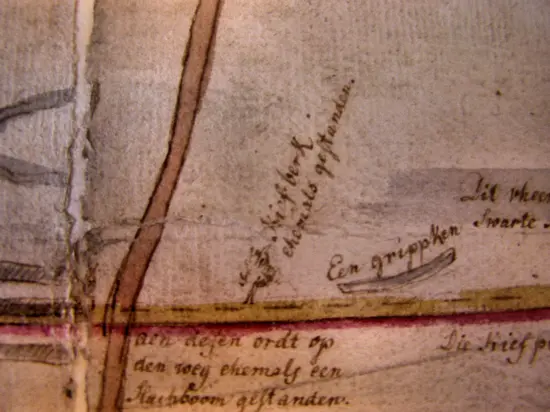 Kiefberk
ehemals gestanden.
Een grippken
Dit
Swarte
aen desen ordt op
den weg ehemals een
slachboom gestanden.
Die Kief